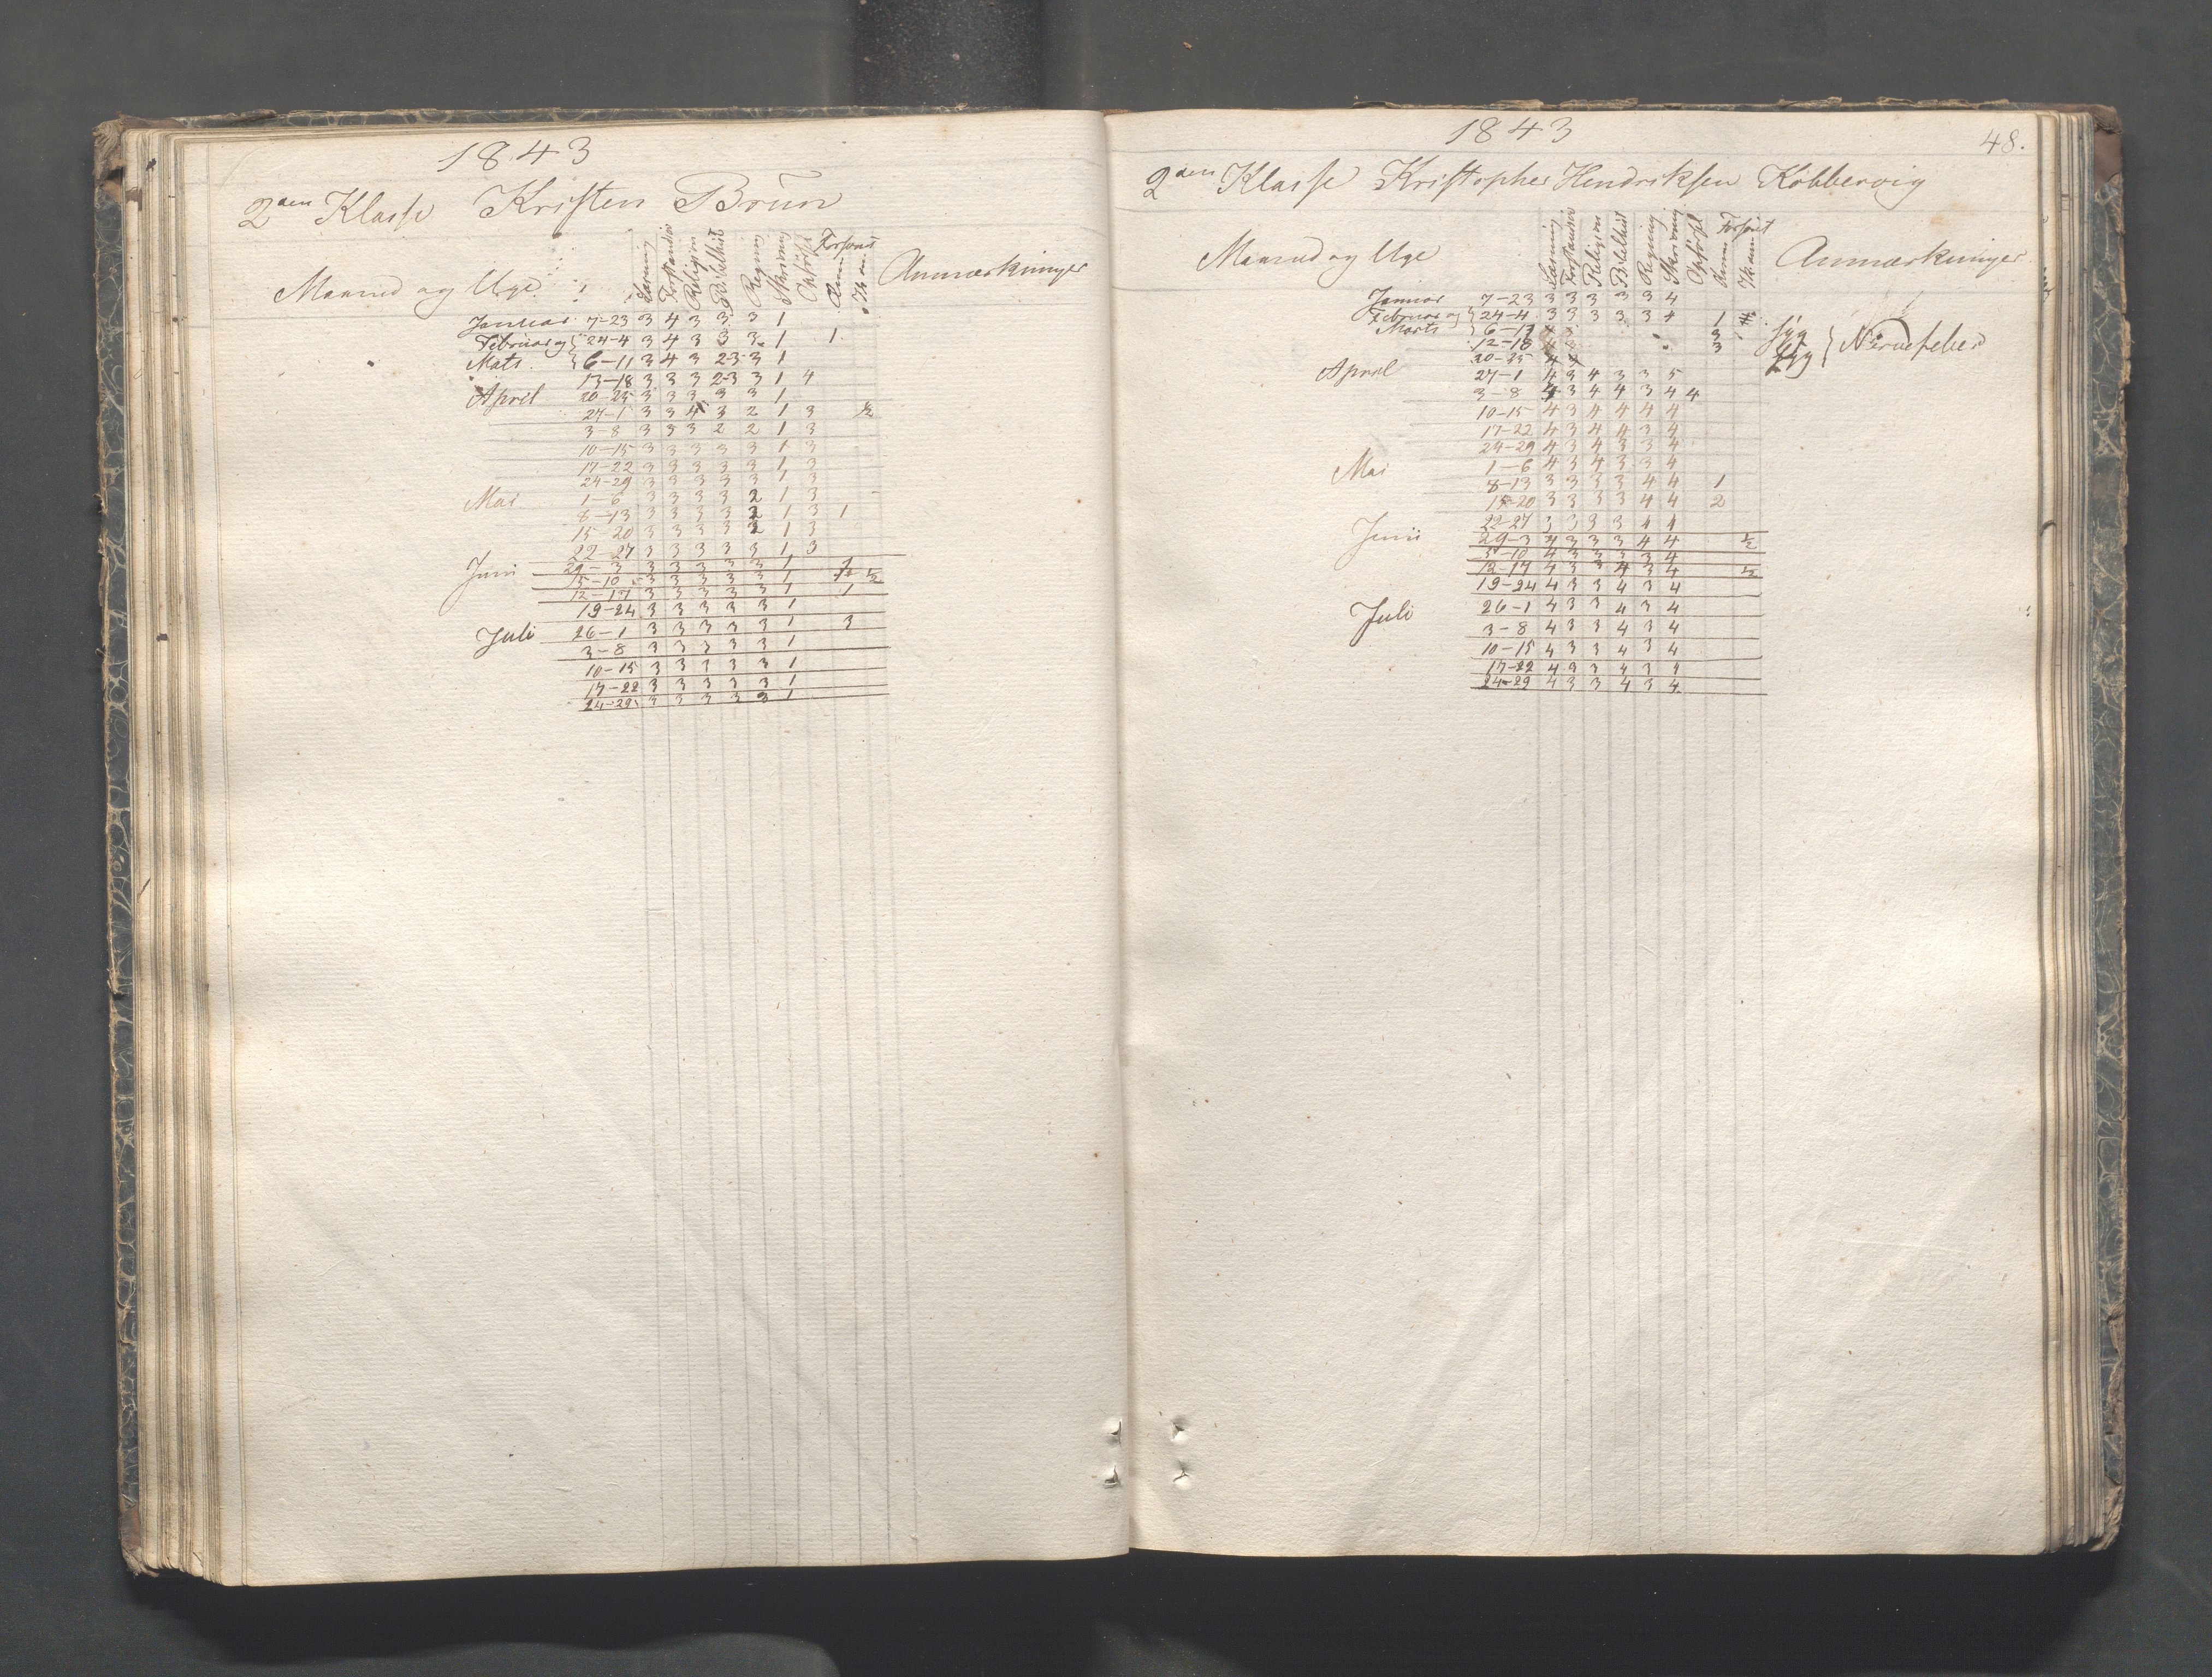 1843
2den Klasse Kristen Brun
Maaned og Uge Læsning Forstand Religion Bibelhist Regning Skrivning Opførsel Forsømt Anm. Ikke an. Anmærkninger
Januar 7-23 3 4 3 3 3 1
Februar og 24-4 3 4 3 3 3 1 1
Mats 6-11 3 4 3 2-3 3 1
13-18 3 3 3 2-3 3 1 4
April 20-25 3 3 3 3 3 1
27-1 3 3 4 3 2 1 3 ½
3-8 3 3 3 2 2 1 3
10-15 3 3 3 3 3 1 3
17-22 3 3 3 3 3 1 3
24-29 3 3 3 3 3 1 3
Mai 1-6 3 3 3 3 2 1 3
8-13 3 3 3 3 2 1 3 1
15-20 3 3 3 3 2 1 3
22-27 3 3 3 3 3 1 3
Juni 29-3 3 3 3 3 3 1 1
5-10 3 3 3 3 3 1 ½
12-17 3 3 3 3 3 1 1
19-24 3 3 3 3 3 1
Juli 26-1 3 3 3 3 3 1 3
3-8 3 3 3 3 3 1
10-15 3 3 3 3 3 1
17-22 3 3 3 3 3 1
24-29 3 3 3 3 3 1
1843
48.
2den Klasse Kristopher Hendriksen Kobbervig
Maaned og Uge Læsning Forstand Religion Bibelhist Regning Skrivning Opførsel Forsømt Anm. Ikke an. Anmærkninger
Januar 7-23 3 3 3 3 3 4
Februar og 24-4 3 3 3 3 3 4 1
Marts 6-11 x x 3 syg
12-18 3 syg } Nervefeber
20-25 4 4
April 27-1 4 3 4 3 3 5
3-8 4 3 4 4 3 4 4
10-15 4 3 4 4 4 4
17-22 4 3 4 4 3 4
24-29 4 3 4 3 3 4
Mai 1-6 4 3 4 3 3 4
8-13 3 3 3 3 4 4 1
15-20 3 3 3 3 4 4 2
22-27 3 3 3 3 4 4
Juni 29-3 4 3 3 3 4 4 ½
5-10 4 3 3 3 3 4
12-17 4 3 3 4 3 4 ½
19-24 4 3 3 4 3 4
Juli 26-1 4 3 3 4 3 4
3-8 4 3 3 4 3 4
10-15 4 3 3 4 3 4
17-22 4 3 3 4 3 4
24-29 4 3 3 4 3 4